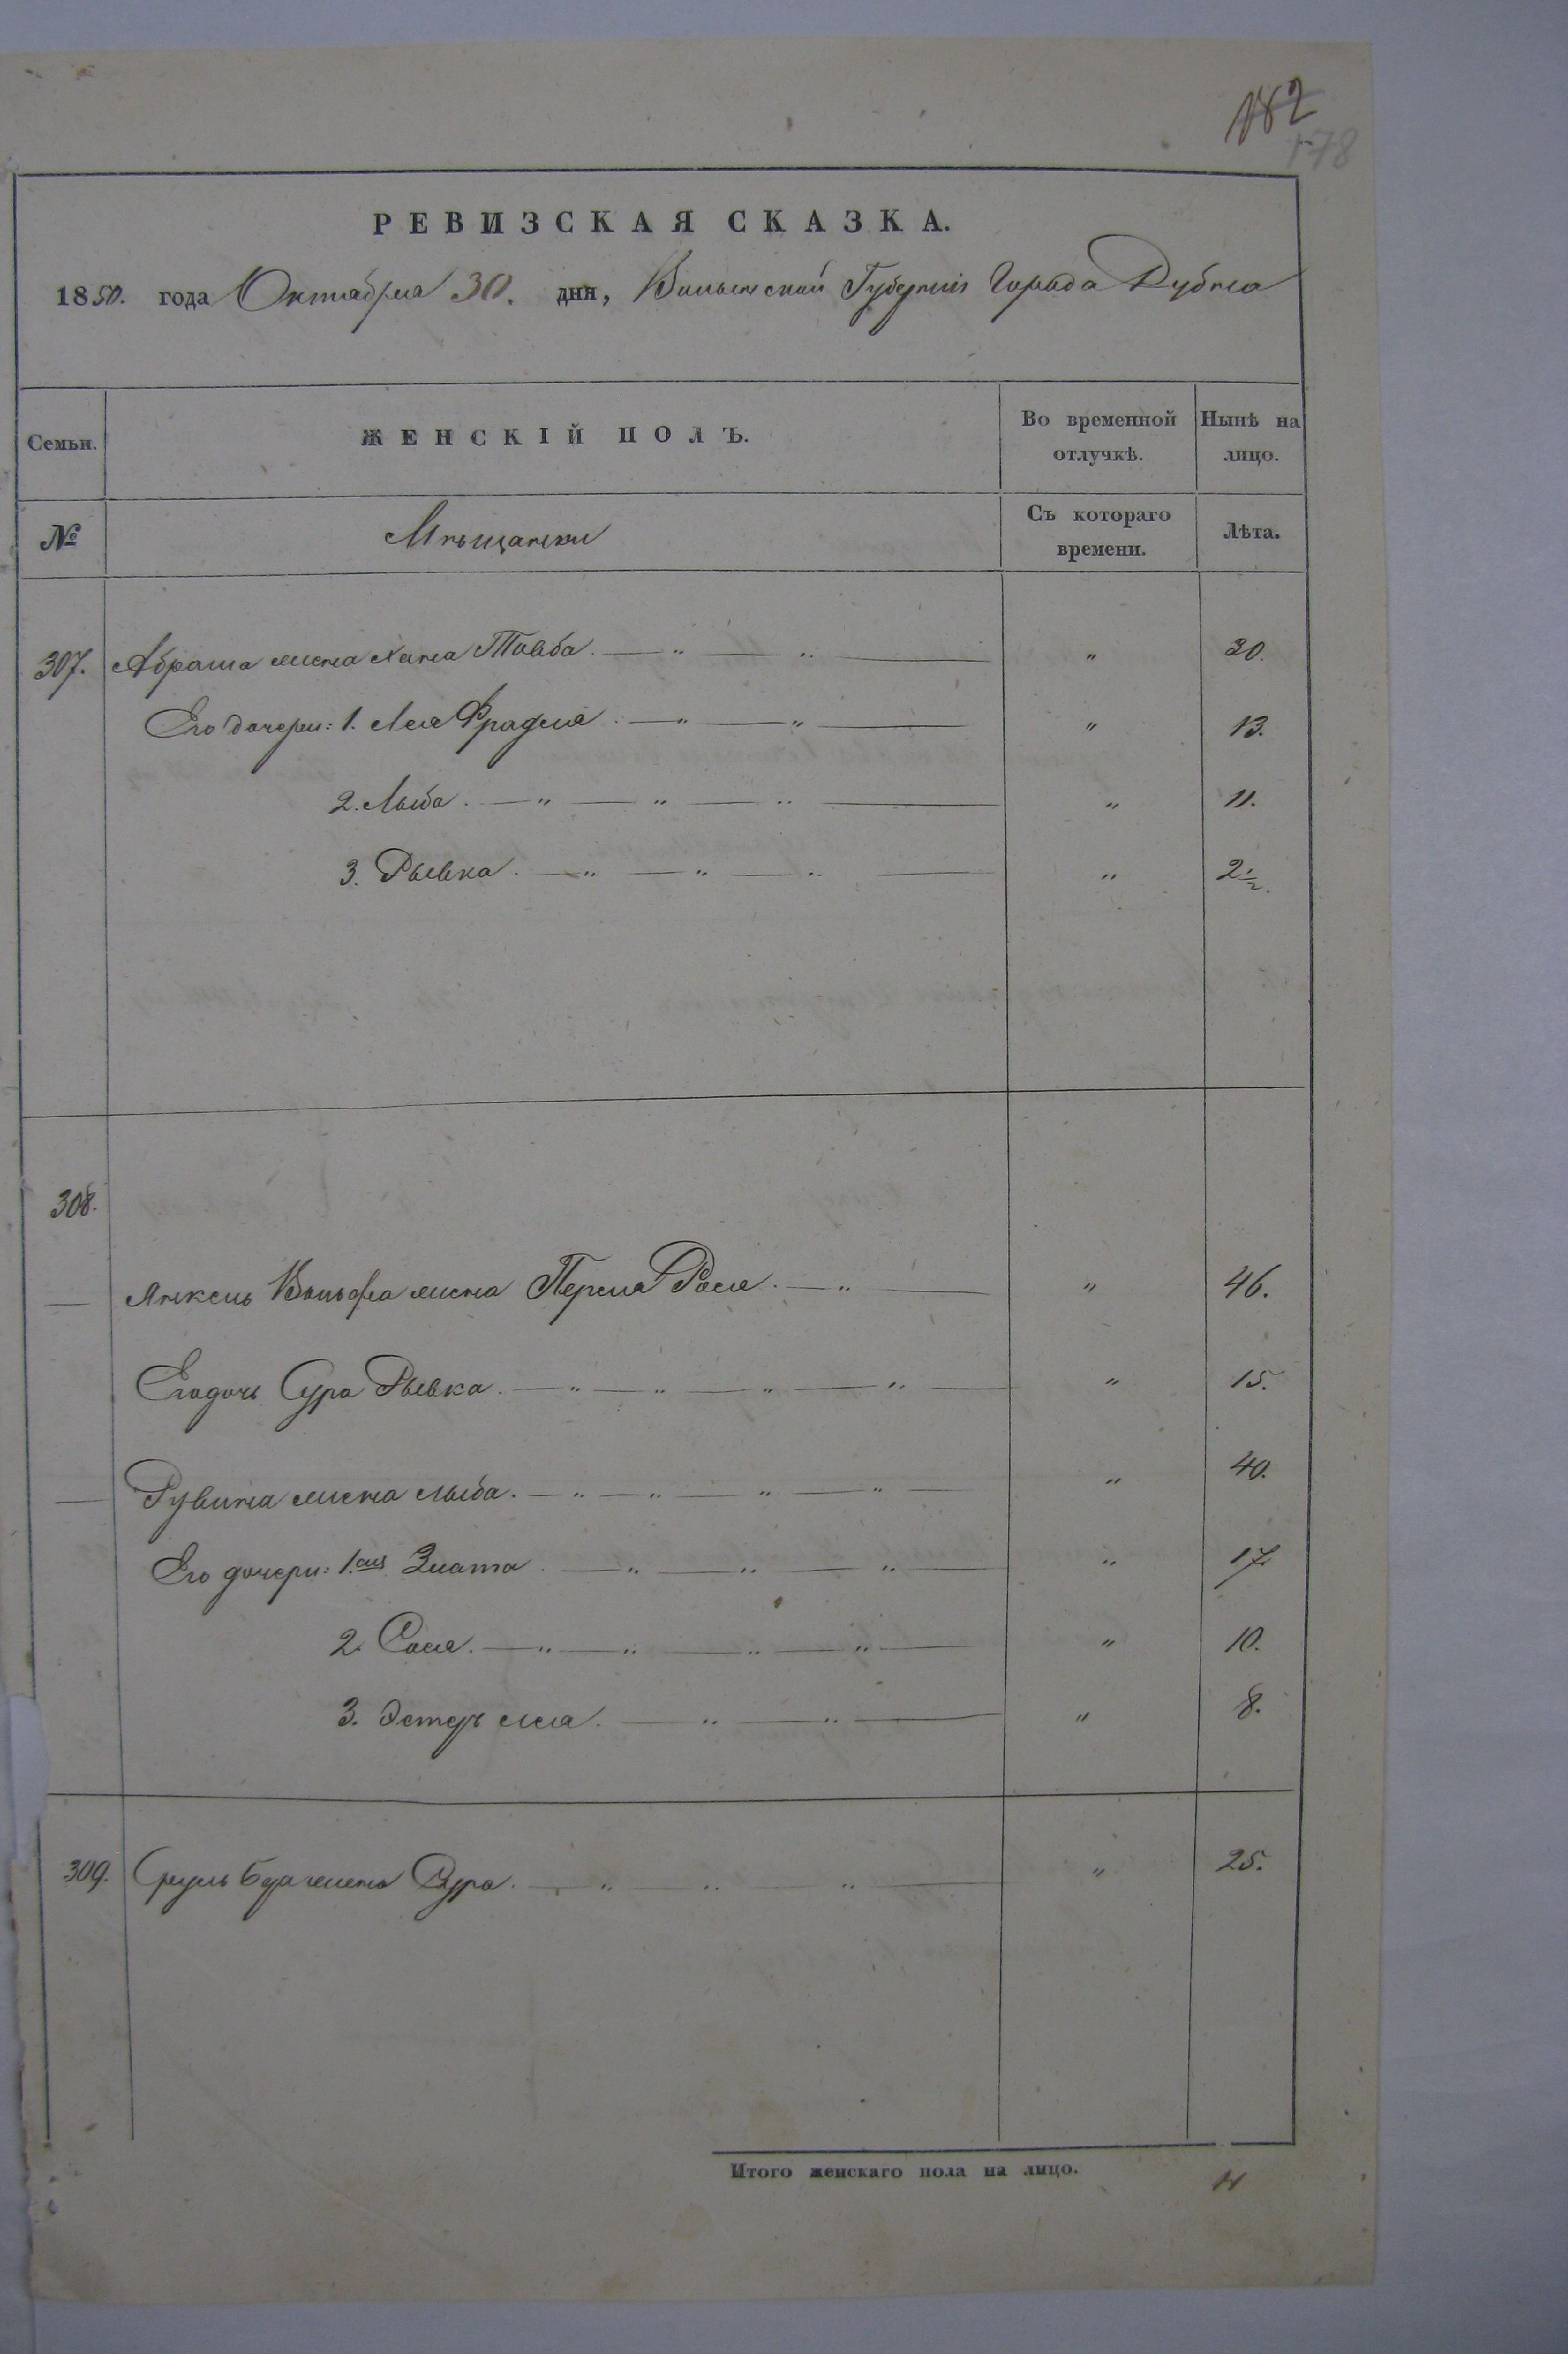 182
178
РЕВИЗСКАЯ СКАЗКА.
1850. года Октября 30. дня, Волынской Губернiи Города Дубна
Семьи. ЖЕНСКІЙ ПОЛЪ. Во временной отлучкѣ. Нынѣ на лицо.
№ Мѣщанки Съ котораго времени. Лѣта.
307. Абрама жена Хана Товба. — " — " — " 30.
Его дочери: 1. Лея Фрадля. — " — " — " 13.
2. Лыба. — " — " — " — " 11.
3. Рывка. — " — " — " — " 2½.
308.
— Янкель Вольфа жена Перля Рося. — " — " 46.
Его дочь Сура Рывка. — " — " — " — " — " 15.
— Рувина жена Лыба. — " — " — " — " — " 40.
Его дочери: 1.ая Злата. — " — " — " — " 17.
2. Сося. — " — " — " — " — " 10.
3. Эстеръ Лея. — " — " — " 8.
309. Сруль жена Сура. — " — " — " — " 25.
Итого женскаго пола на лицо. 11